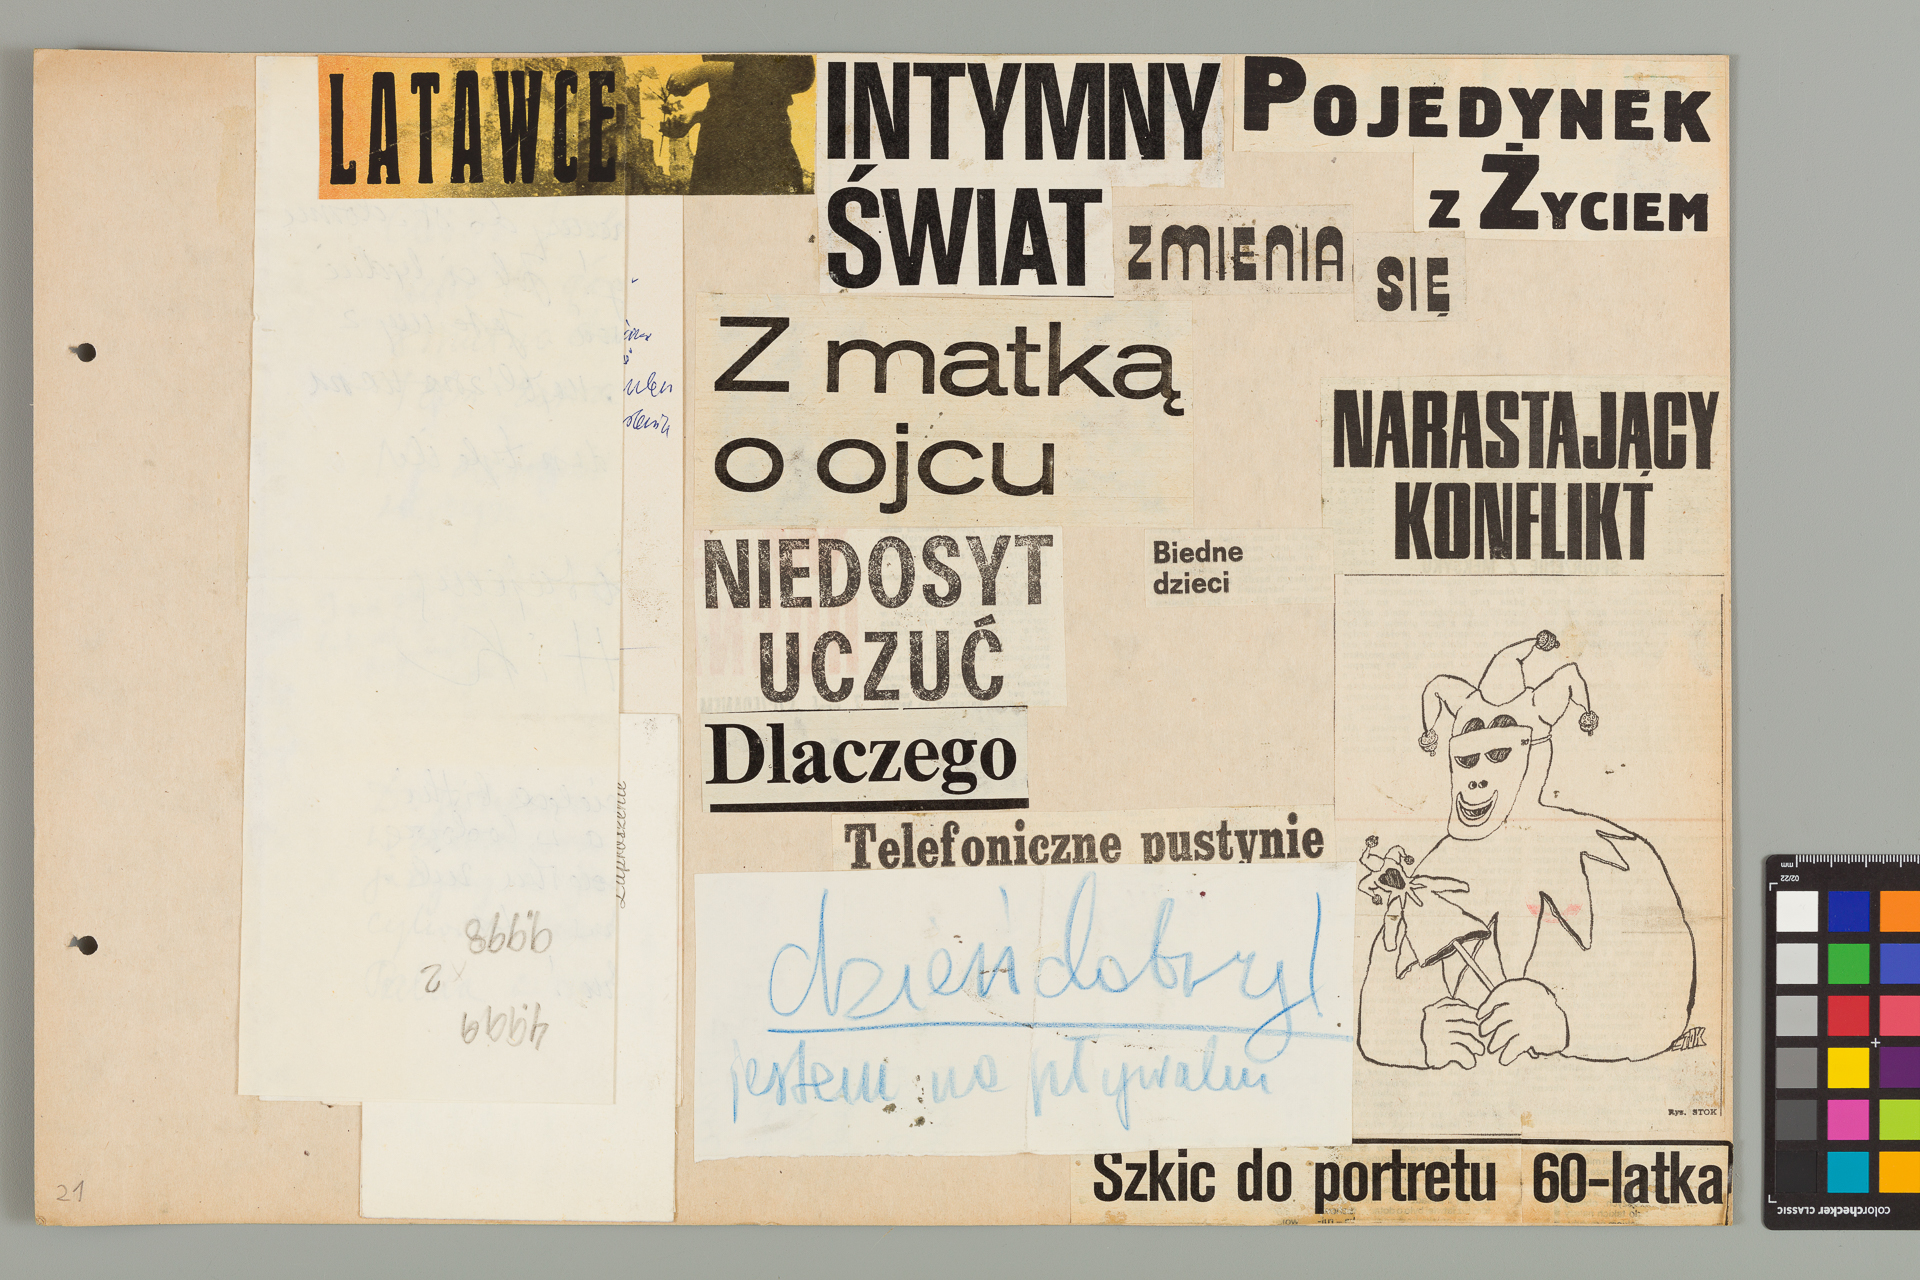 LATAWCE
INTYMNY
ŚWIAT
ZMIENIA
SIĘ
POJEDYNEK
Z ŻYCIEM
Z matką
o ojcu
NARASTAJĄCY
KONFLIKT
NIEDOSYT
UCZUĆ
Biedne
dzieci
Dlaczego
Telefoniczne pustynie
dzień dobry!
jestem na pływalni
Zaproszenie
9998
2
4999
Rys. STOK
Szkic do portretu 60-latka
21
mm
02/22
colorchecker CLASSIC